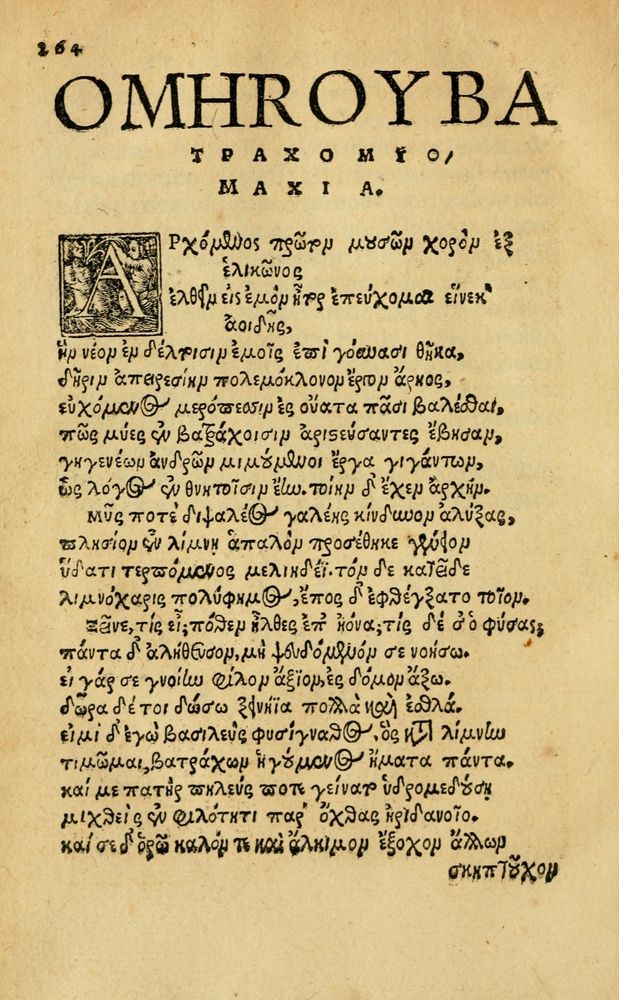 264
ΟΜΗΡΟΥ ΒΑ
ΤΡΑΧΟΜΥΟ/
ΜΑΧΙΑ.
ΑΡχόμενος πρῶτον μουσῶν χορὸν ἐξ
ἑλικῶνος
ἐλθεῖν εἰς ἐμὸν ἦτορ ἐπεύχομαι εἵνεκ'
ἀοιδῆς,
ἣν νέον ἐν δέλτοισιν ἐμοῖς ἐπὶ γούνασι θῆκα,
δῆριν ἀπειρεσίην πολεμόκλονον ἔργον ἄρηος,
εὐχόμενος μερόπεσσιν ἐς οὔατα πᾶσι βαλέσθαι,
πῶς μύες ἐν βατράχοισιν ἀριστεύσαντες ἔβησαν,
γηγενέων ἀνδρῶν μιμούμενοι ἔργα γιγάντων,
ὡς λόγος ἐν θνητοῖσιν ἔην. τοίην δ' ἔχεν ἀρχήν.
Μῦς ποτὲ διψαλέος γαλέης κίνδυνον ἀλύξας,
πλησίον ἐν λίμνῃ ἁπαλὸν προσέθηκε γένειον
ὕδατι τερπόμενος μελιηδέϊ. τὸν δὲ κατεῖδε
λιμνόχαρις πολύφημος, ἔπος δ' ἐφθέγξατο τοῖον.
Ξεῖνε, τίς εἶ; πόθεν ἦλθες ἐπ' ἠόνα; τίς δέ σ' ὁ φύσας;
πάντα δ' ἀλήθευσον, μὴ ψευδόμενόν σε νοήσω.
εἰ γάρ σε γνοίην φίλον ἄξιον, ἐς δόμον ἄξω.
δῶρα δέ τοι δώσω ξεινήϊα πολλὰ καὶ ἐσθλά.
εἰμὶ δ' ἐγὼ βασιλεὺς φυσίγναθος, ὃς κατὰ λίμνην
τιμῶμαι, βατράχων ἡγούμενος ἤματα πάντα.
καί με πατὴρ πηλεύς ποτε γείνατο ὑδρομεδούσῃ
μιχθεὶς ἐν φιλότητι παρ' ὄχθας ἠριδανοῖο.
καί σε δ' ὁρῶ καλόν τε καὶ ἄλκιμον ἔξοχον ἄλλων
σκηπτοῦχον